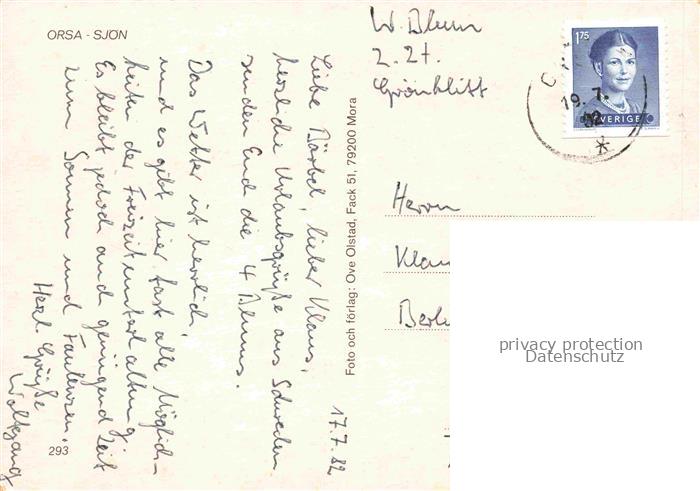 ORSA - SJÖN
17.7.82
Liebe Bärbel, lieber Klaus,
herzliche Urlaubsgrüße aus Schweden
senden Euch die 4 Blums.
Das Wetter ist herrlich,
und es gibt hier fast alle Möglich-
keiten der Freizeitunterhaltung.
Es bleibt jedoch auch genügend Zeit
zum Sonnen und Faulenzen.
Herzl. Grüße
Wolfgang
293
Foto och förlag: Ove Olstad, Fack 51, 79200 Mora
W. Blum
z. Zt.
Grönklitt
1.75
SVERIGE
19.7.
82
Herrn
Klau
Berl
privacy protection
Datenschutz